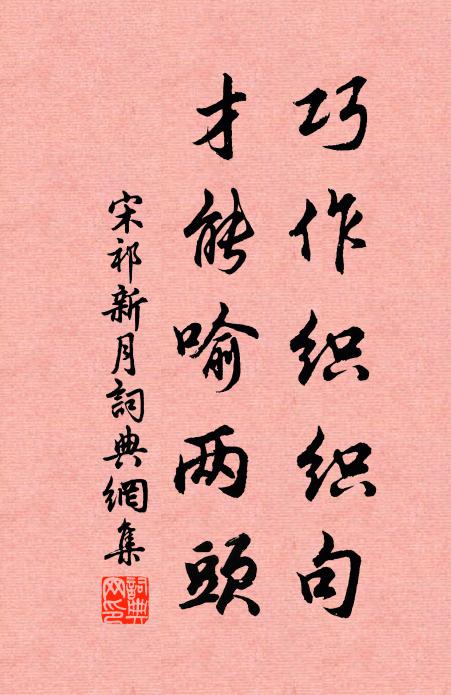 巧作织织句
才能喻两頭
宋祁新月詞典網集
詞典网印